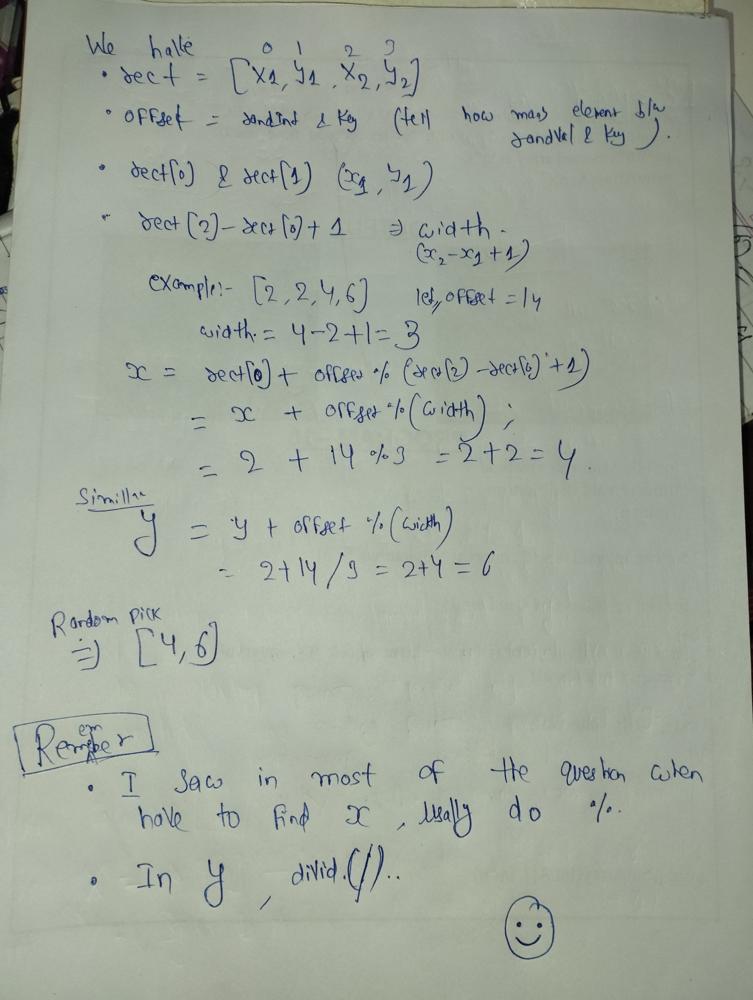 We have
0 1 2 3
• rect = [x1, y1, x2, y2]
• offset = randInt & key (tell how many element b/w
randVal & key).
• rect[0] & rect[1] (x1, y1)
• rect[2]-rect[0]+1 => width.
(x2-x1+1)
example:- [2,2,4,6] let, offset = 14
width = 4-2+1 = 3
x = rect[0] + offset % (rect[2]-rect[0]+1)
= x + offset % (width);
= 2 + 14 % 3 = 2+2 = 4.
y = y + offset % (width)
= 2+14/3 = 2+4 = 6
Random pick
=> [4,6]
Remember
• I saw in most of the question when
have to find x, usally do %.
• In y, divid.(/)..